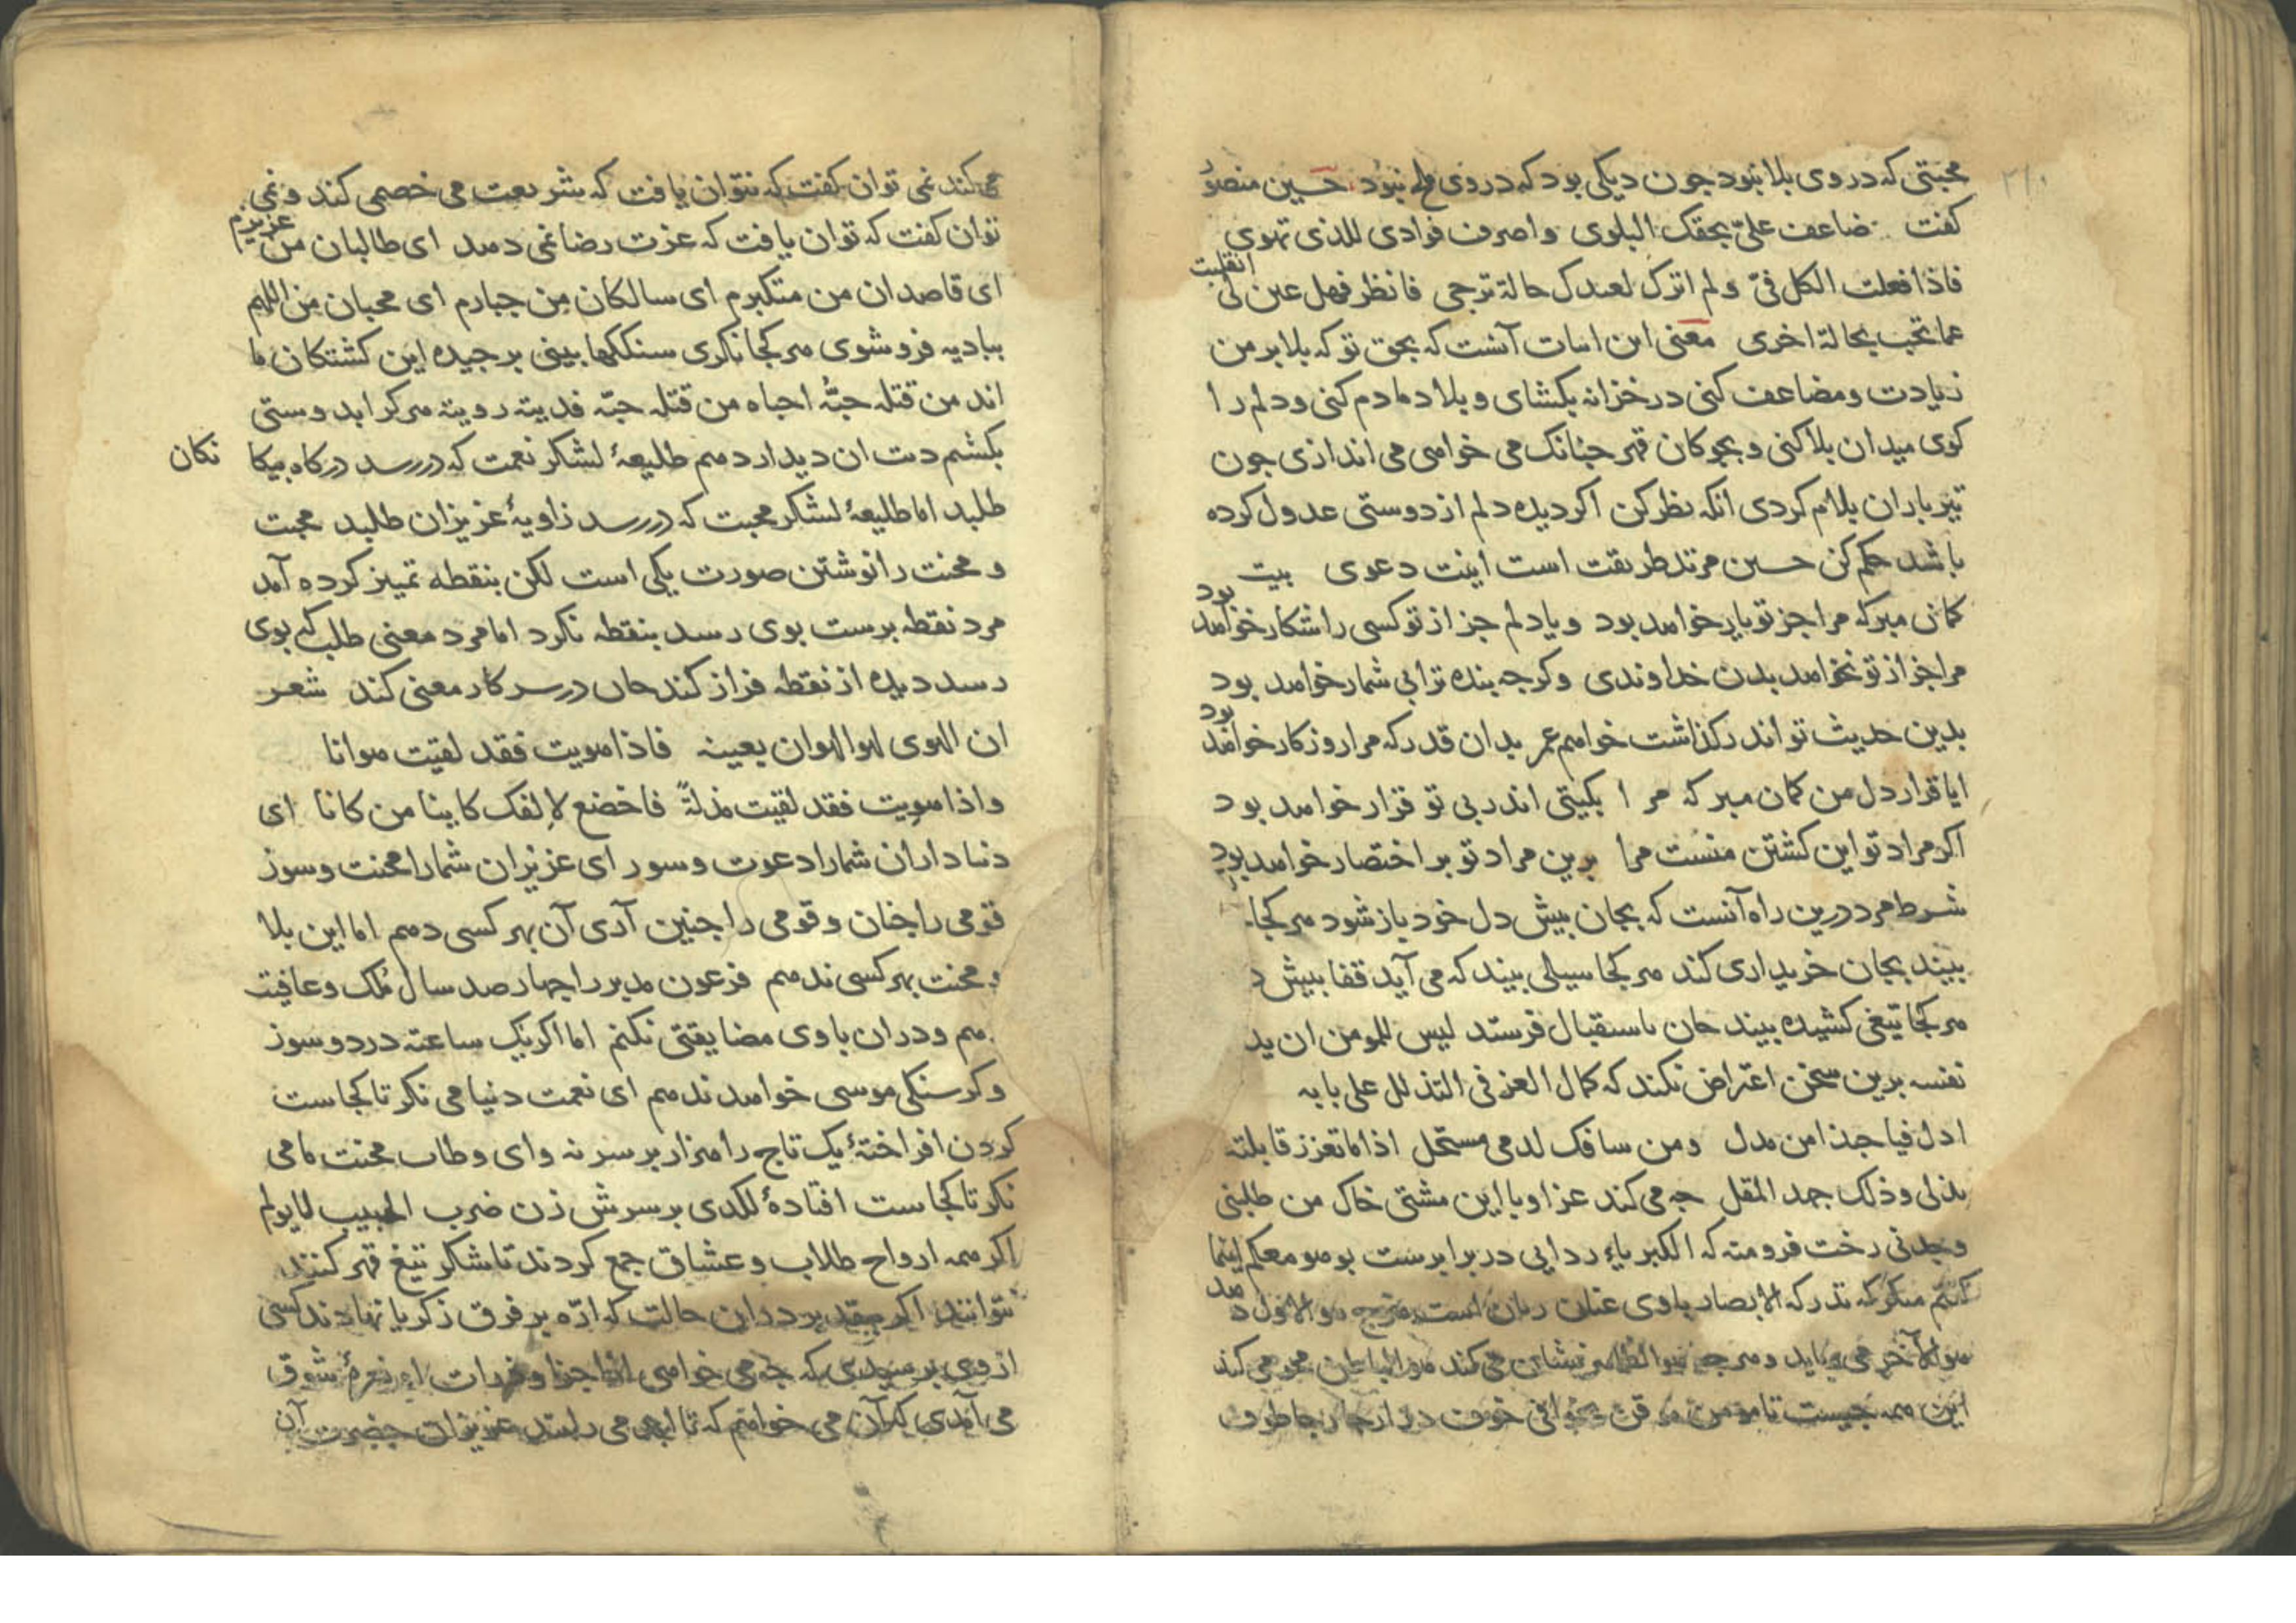 محبتی که در وی بلا نبود جون دیکی بود که در وی ملح نبود حسین منصور
کفت ضاعف علیّ بحقک البلوی واصرف فوادی للذی تهوی
فاذا فعلت الکل فیّ ولم اترک لعندک حالة ترجی فانظر فهل عین لی انقلبت
عما تحب بحالة اخری معنی این ابیات آنست که بحق تو که بلا بر من
زیادت ومضاعف کنی در خزانه بکشای و بلا دمادم کنی ودلم را
کوی میدان بلا کنی و بجوکان قهر جنانک می خواهی می اندازی جون
تیر باران بلام کردی انکه نظر کن اکر دیده دلم از دوستی عدول کرده
باشد حکم کن حسین مرتد طریقت است اینت دعوی بیت
کمان مبر که مرا جز تو یار خواهد بود و یا دلم جز از تو کسی را شکار خواهد بود
مرا جز از تو نخواهد بدن خداوندی وکرجه بنده ترا بی شمار خواهد بود
بدین حدیث تو اندر کذاشت خواهم عمر بدان قدر که مرا روزکار خواهد بود
ایا قرار دل من کمان مبر که مرا بکیتی اندر بی تو قرار خواهد بود
اکر مراد تو این کشتن منست مرا برین مراد تو بر اختصار خواهد بود
شرط مرد درین راه آنست که بجان بیش دل خود باز شود هر کجا
بیند بجان خریداری کند هر کجا سیلی بیند که می آید قفا بیش د
هر کجا تیغی کشیده بیند جان باستقبال فرستد لیس للمومن ان یذ
نفسه برین سخن اعتراض نکند که کمال العز فی التذلل علی بابه
ادل فیا حبذا من مدل ومن سافک لدمی مستحل اذا ما تعزز قابلته
بذلی وذلک جهد المقل جه می کند عز او با این مشتی خاک من طلبنی
وجدنی رخت فرو منه که الکبریاء ردایی در برابرست بوهو معکم اینما
کنتم منکر که تدرکه الابصار با وی عنان رنان است هرج هو الاول دهد
هو الآخر می رباید وهر جه هو الظاهر نشان می کند هو الباطن محو می کند
این همه جیست تا مومن موقن خوف
می کند نمی توان کفت که نتوان یافت که شریعت می خصمی کند و نمی
توان کفت که توان یافت که عزت رضا نمی دهد ای طالبان من عزیزم
ای قاصدان من متکبرم ای سالکان من جبارم ای محبان من اللهم
ببادیه فروشوی هر کجا نکری سنککها بینی برجیده این کشتکان ما
اند من قتله حبّه احیاه من قتله حبّه فدیته رویته هر کرا بد وستی
بکشم دیت ان دیدار دهم طلیعهٔ لشکر نعمت که دررسد درکاه بیکا نکان
طلبد اما طلیعهٔ لشکر محبت که دررسد زاویهٔ عزیزان طلبد محبت
و محنت را نوشتن صورت یکی است لکن بنقطه تمییز کرده آمد
مرد نقطه برست بوی رسد بنقطه نکرد اما مرد معنی طلب که بوی
رسد دیده از نقطه فراز کند جان در سر کار معنی کند شعر
ان الهوی لهو الهوان بعینه فاذا هویت فقد لقیت هوانا
واذا هویت فقد لقیت مذلةً فاخضع لإلفک کاینا من کانا ای
دنیا داران شما را دعوت وسور ای عزیزان شما را محنت وسوز
قومی را جنان وقومی را جنین آری آن بهر کسی دهم اما این بلا
و محنت بهر کسی ندهم فرعون مدبر را جهارصد سال مُلک وعافیت
هم ودران با وی مضایقتی نکنم اما اکر یک ساعته درد وسوز
وکرسنکی موسی خواهد ندهم ای نعمت دنیا می نکر تا کجاست
کردن افراختهٔ یک تاج را هزار بر سر نه وای وطاب محنت ما می
نکر تا کجاست افتادهٔ لکدی بر سرش زن ضرب الحبیب لا یولم
اکر همه ارواح طلاب وعشاق جمع کردند تا شکر تیغ قهر کنند
نتوانند اکر دران حالت که ارّه بر فرق زکریا نهادند کسی
از وی برسیدی که جه می خواهی اجزا وذرات او نعرهٔ شوق
می آمدی که آن می خواهم که تا ابد می رانند عزیزان حضرت آن